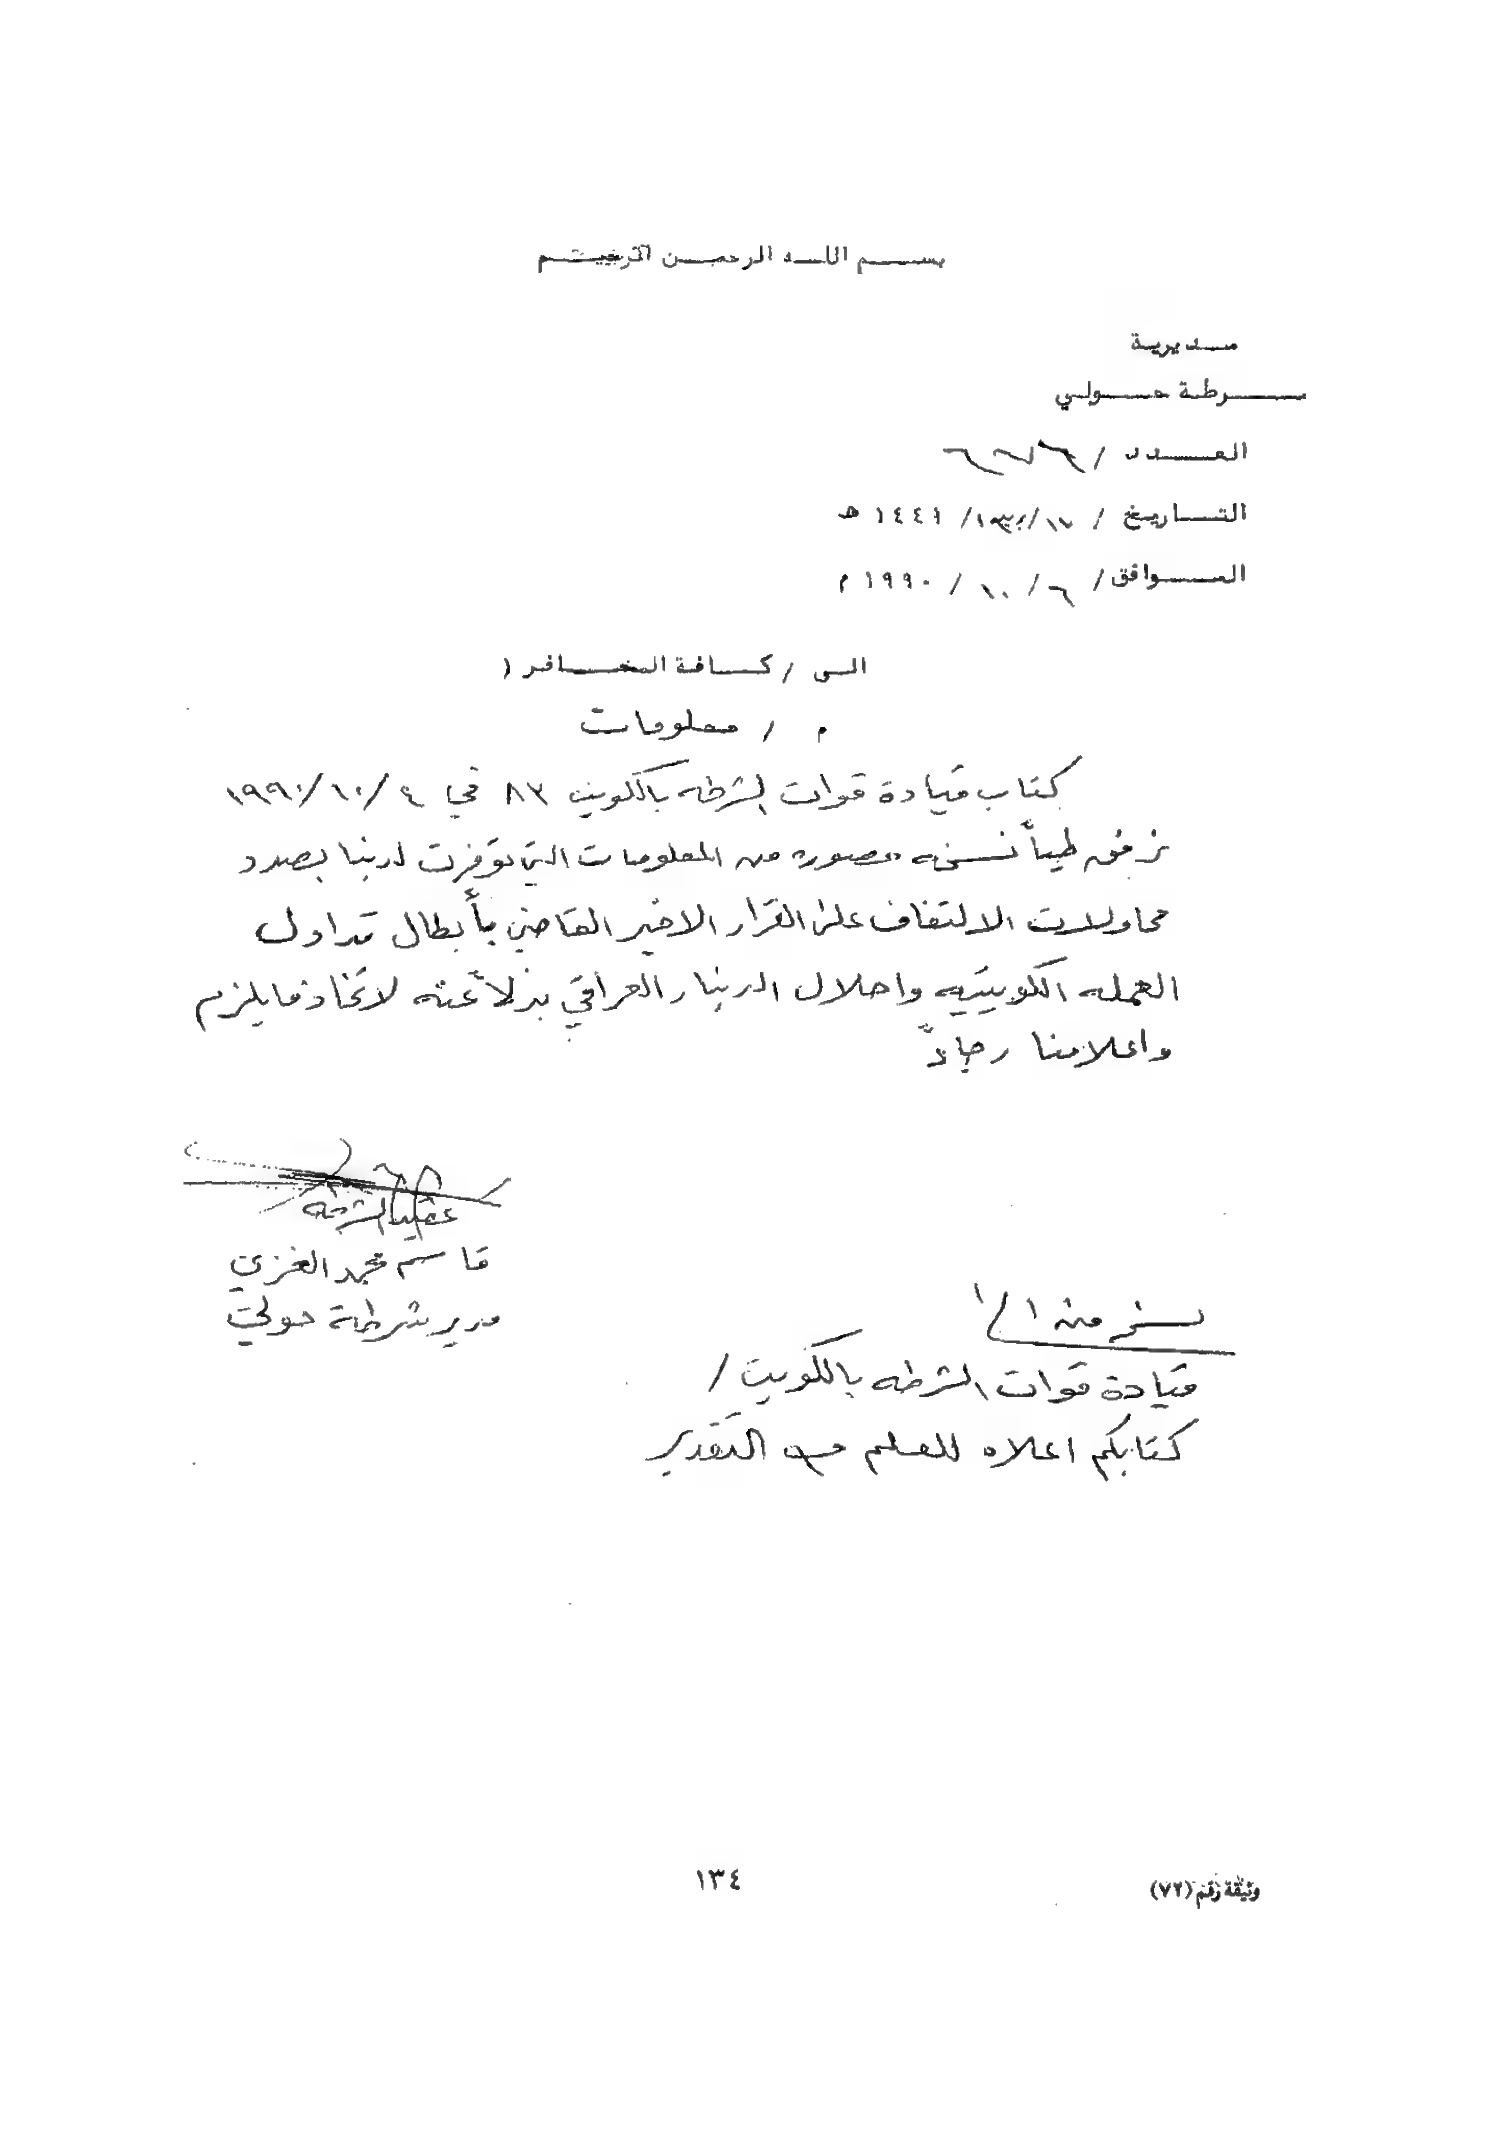 بسم الله الرحمن الرحيم
مديرية
شرطة حولي
العدد /
التاريخ / ١٧/ / ١٤٤١ هـ
الموافق/ ٦ / ١٠ / ١٩٩٠ م
الى / كافة المخافر (
م / معلومات
كتاب قيادة قوات الشرطه بالكويت ٨٣ في ٤ /١٠/ ١٩٩٠
نرفق طياً نسخه مصوره من المعلومات التي توفرت لدينا بصدد
محاولات الالتفاف على القرار الاخير القاضي بأبطال تداول
العمله الكويتيه واحلال الدينار العراقي بدلاً عنه لاتخاذ مايلزم
واعلامنا رجاءً
عقيد الشرطه
قاسم محمد الغزي
مدير شرطة حولي
نسخه منه الى /
قيادة قوات الشرطه بالكويت /
كتابكم اعلاه للعلم مع التقدير
١٣٤
وثيقة رقم (٧٢)